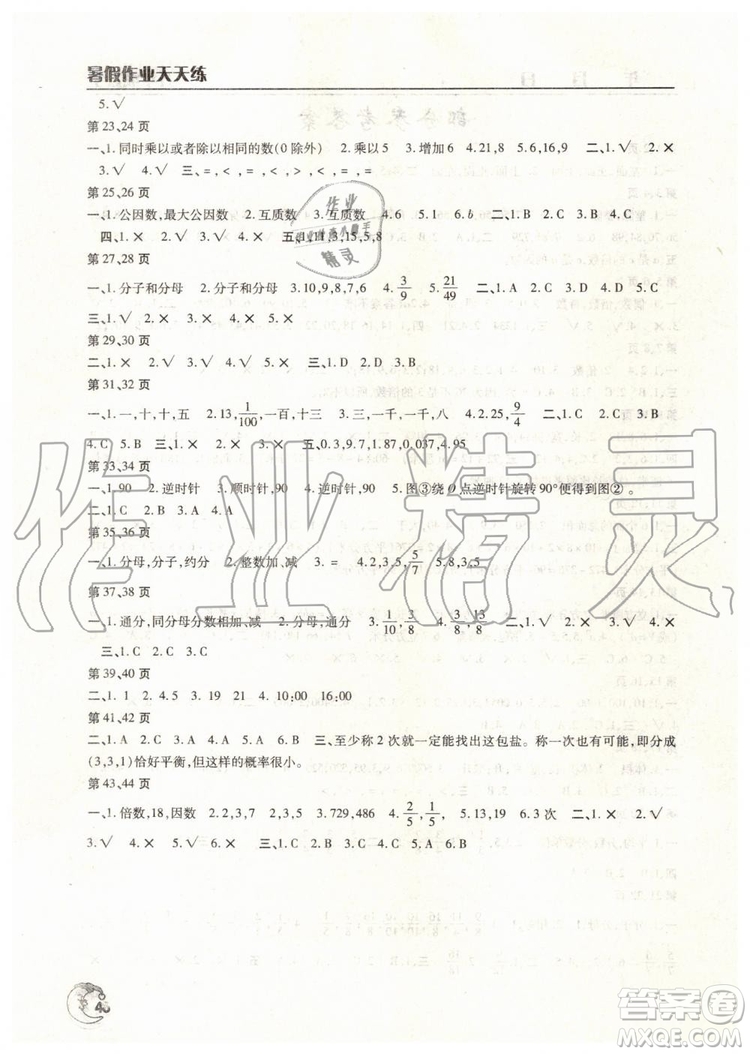 暑假作业天天练
5.√
第23、24页
一、1.同时乘以或者除以相同的数(0除外) 2.乘以5 3.增加6 4.21,8 5.6,16,9 二、1.√ 2.×
3.√ 4.√ 三、=,<,=,>,<,=,=
第25、26页
一、1.公因数,最大公因数 2.互质数 3.互质数 4.6 5.1 6.b 二、1.× 2.√ 3.√
四、1.× 2.× 五、1,11,3,15,5,8
第27、28页
一、1.分子和分母 2.分子和分母 3.10,9,8,7,6 4.3/9 5.21/49 二、1.C 2.C 3.C 4.B 5.C
三、1.× 2.√ 3.× 4.× 5.×
第29、30页
二、1.× 2.√ 3.√ 4.√ 5.× 三、1.D 2.D 3.C
第31、32页
一、1.一,十,十,五 2.13,1/100,一百,十三 3.三,一千,一千,八 4.2.25,9/4 二、1.C 2.C 3.B
4.C 5.B 三、1.√ 2.× 3.× 五、0.3,9.7,1.87,0.037,4.95
第33、34页
一、1.90 2.逆时针 3.顺时针,90 4.逆时针,90 5.图③绕O点逆时针旋转90°便得到图②。
二、1.C 2.B 3.A 4.A
第35、36页
一、1.分母,分子,约分 2.整数加、减 3.= 4.2,3,5,5/7 5.8,3,5
第37、38页
一、1.通分,同分母分数相加、减 2.分母,通分 3.1/10,3/8 4.3/8,13/8 二、1.× 2.√ 3.×
三、1.C 2.C 3.C
第39、40页
二、1.1 2.4.5 3.19 21 4.10:00 16:00
第41、42页
二、1.A 2.C 3.A 4.A 5.B 三、至少称2次就一定能找出这包盐。称一次也有可能,即分成
(3,3,1)恰好平衡,但这样的概率很小。
第43、44页
一、1.倍数,18,因数 2.2,3,5 3.729,486 4.2/5,1/5, 5.13,19 6.3次 二、1.× 2.×
3.√ 4.× 5.√ 6.× 三、1.C 2.B 3.C 4.C 5.A 6.C 7.C 8.B
作业
精灵
作业精灵
答案卷
MXQE.COM